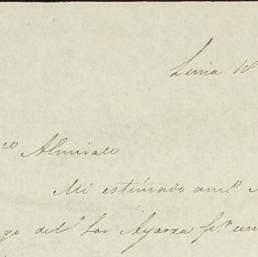 Lima 18
co Almirall
Mi estimado amo
go del Sor Ayarza